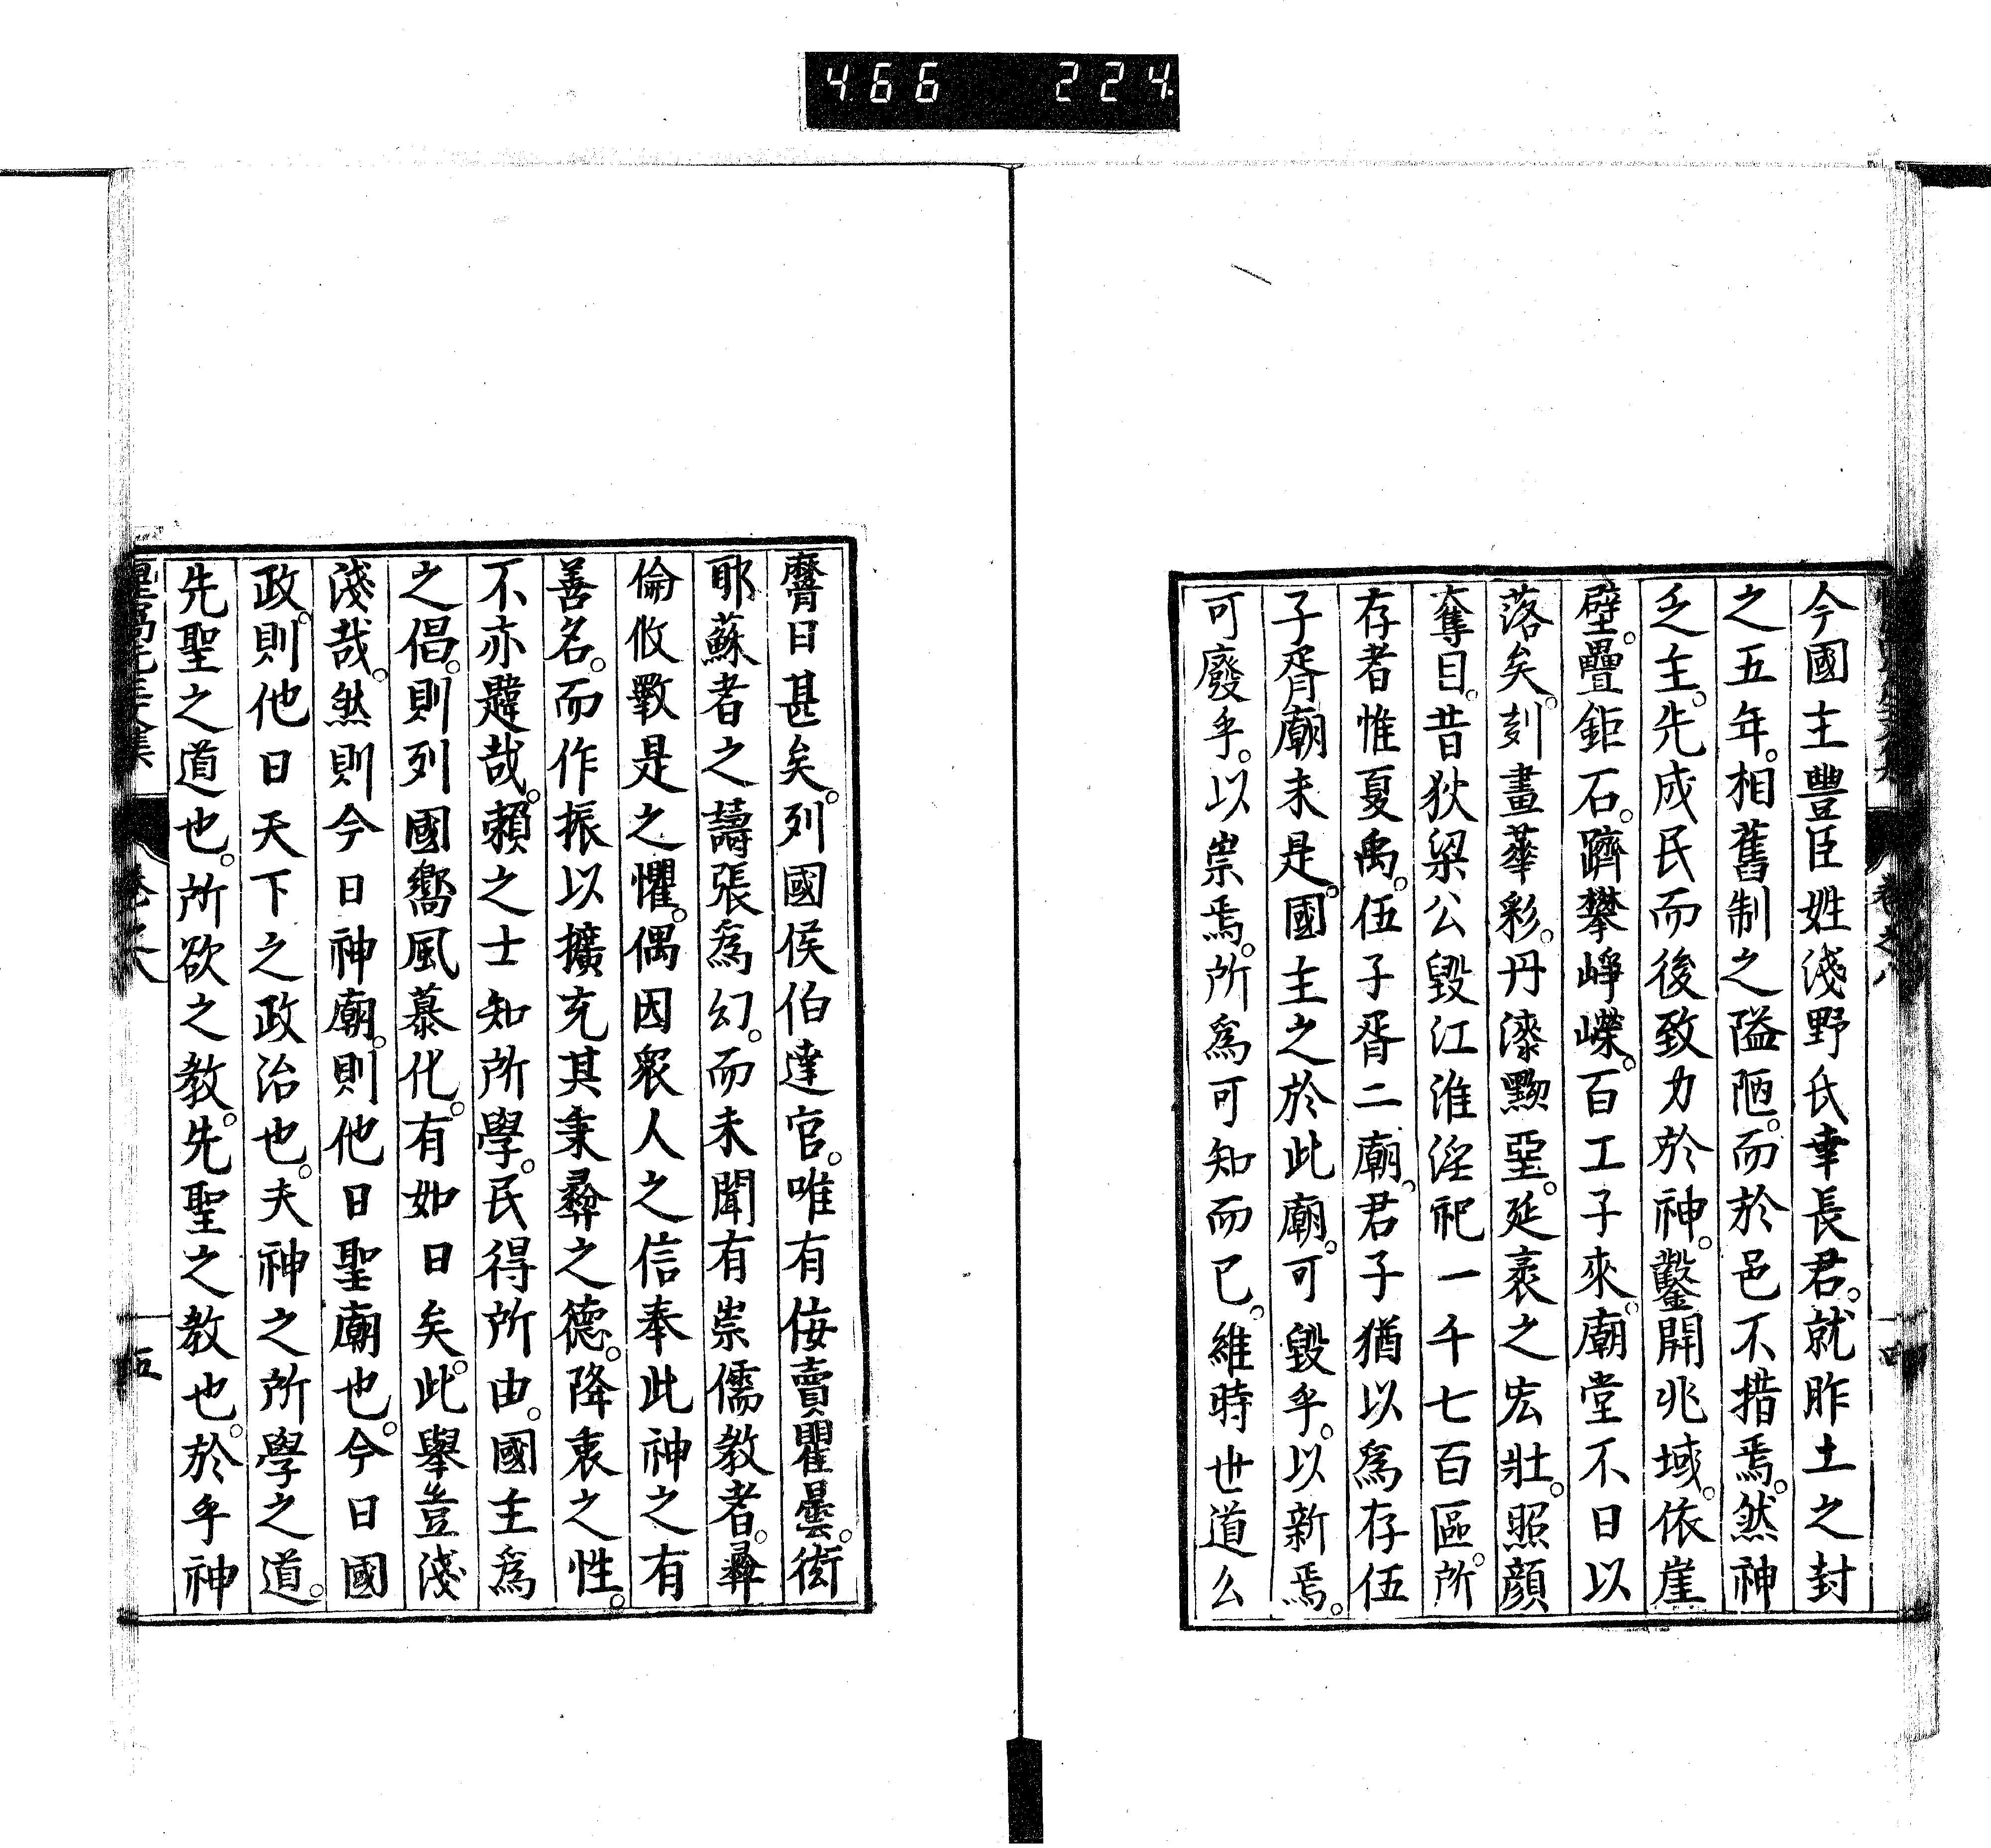 466 224
今國主豐臣姓淺野氏幸長君。就胙土之封
之五年。相舊制之隘陋。而於邑不措焉。然神
乏主。先成民而後致力於神。鑿開兆域。依崖
壁。疊鉅石。躋攀崢嶸。百工子來。廟堂不日以
落矣。刻畫華彩。丹漆黝堊。延袤之宏壯。照顔
奪目。昔狄梁公毀江淮淫祀一千七百區。所
存者惟夏禹。伍子胥二廟。君子猶以爲存伍
子胥廟未是。國主之於此廟。可毀乎。以新焉。
可廢乎。以崇焉。所爲可知而已。維時世道么
卷之八
十四
膺日甚矣。列國侯伯達官。唯有佞賣瞿曇。衒
耶蘇者之譸張爲幻。而未聞有崇儒教者。彝
倫攸斁是之懼。偶因衆人之信奉此神之有
善名。而作振以擴充其秉彝之德。降衷之性。
不亦韙哉。賴之士知所學。民得所由。國主爲
之倡。則列國嚮風慕化。有如日矣。此擧豈淺
淺哉。然則今日神廟。則他日聖廟也。今日國
政。則他日天下之政治也。夫神之所學之道。
先聖之道也。所欲之教。先聖之教也。於乎神
卷之八
十五